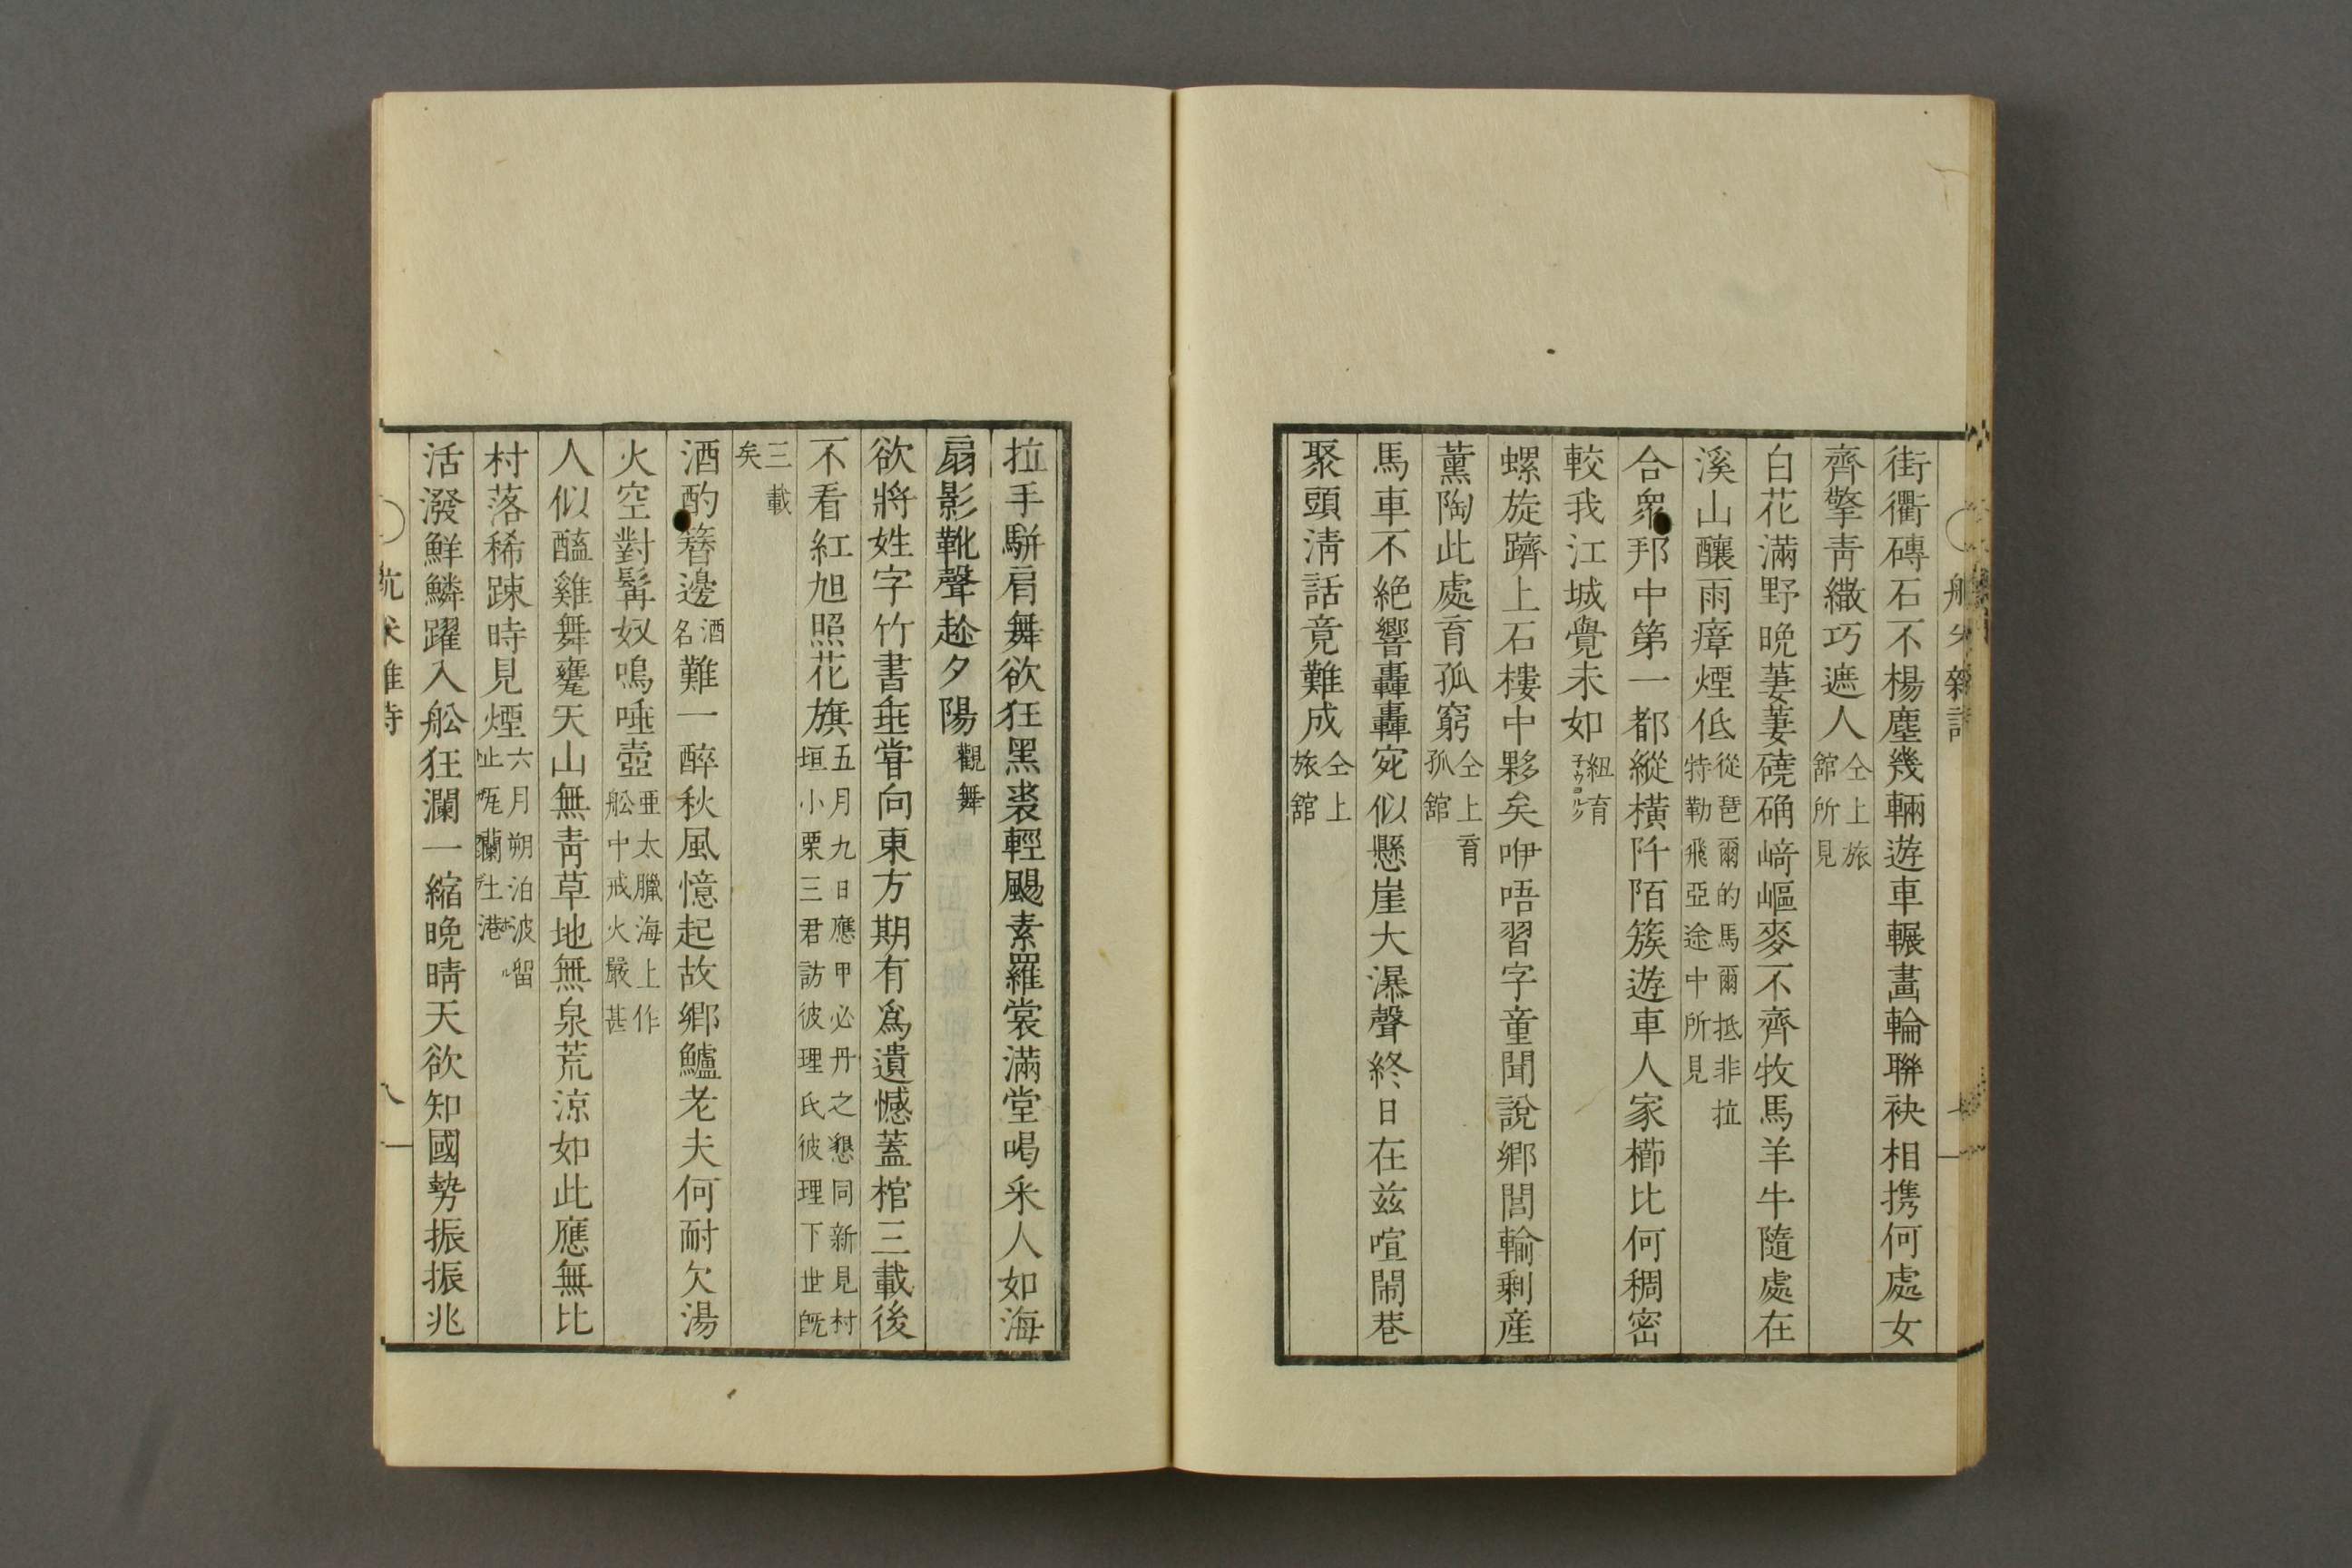 街衢磚石不楊塵幾輛遊車輾畫輪聯袂相携何處女
齊擎靑繖巧遮人仝上旅舘所見
白花滿野晩萋萋磽确崎嶇麥不齊牧馬羊牛隨處在
溪山釀雨瘴煙低從琶爾的馬爾抵非拉特勒飛亞途中所見
合衆邦中第一都縱橫阡陌簇遊車人家櫛比何稠密
較我江城覺未如紐育
螺旋躋上石樓中夥矣咿唔習字童聞說鄉閭輸剩産
薰陶此處育孤窮仝上育孤舘
馬車不絶響轟轟宛似懸崖大瀑聲終日在玆喧鬧巷
聚頭淸話竟難成仝上旅舘
拉手駢肩舞欲狂黑裘輕颺素羅裳滿堂喝采人如海
扇影靴聲趁夕陽觀舞
欲將姓字竹書垂甞向東方期有爲遺憾蓋棺三載後
不看紅旭照花旗五月九日應甲必丹之懇同新見村垣小栗三君訪彼理氏彼理下世旣
三載矣
酒酌簪邊酒名難一醉秋風憶起故鄉鱸老夫何耐欠湯
火空對髯奴鳴唾壺亞太臘海上作舩中戒火嚴甚
人似醯雞舞甕天山無靑草地無泉荒涼如此應無比
村落稀踈時見煙六月朔泊波留
活潑鮮鱗躍入舩狂瀾一縮晩晴天欲知國勢振振兆